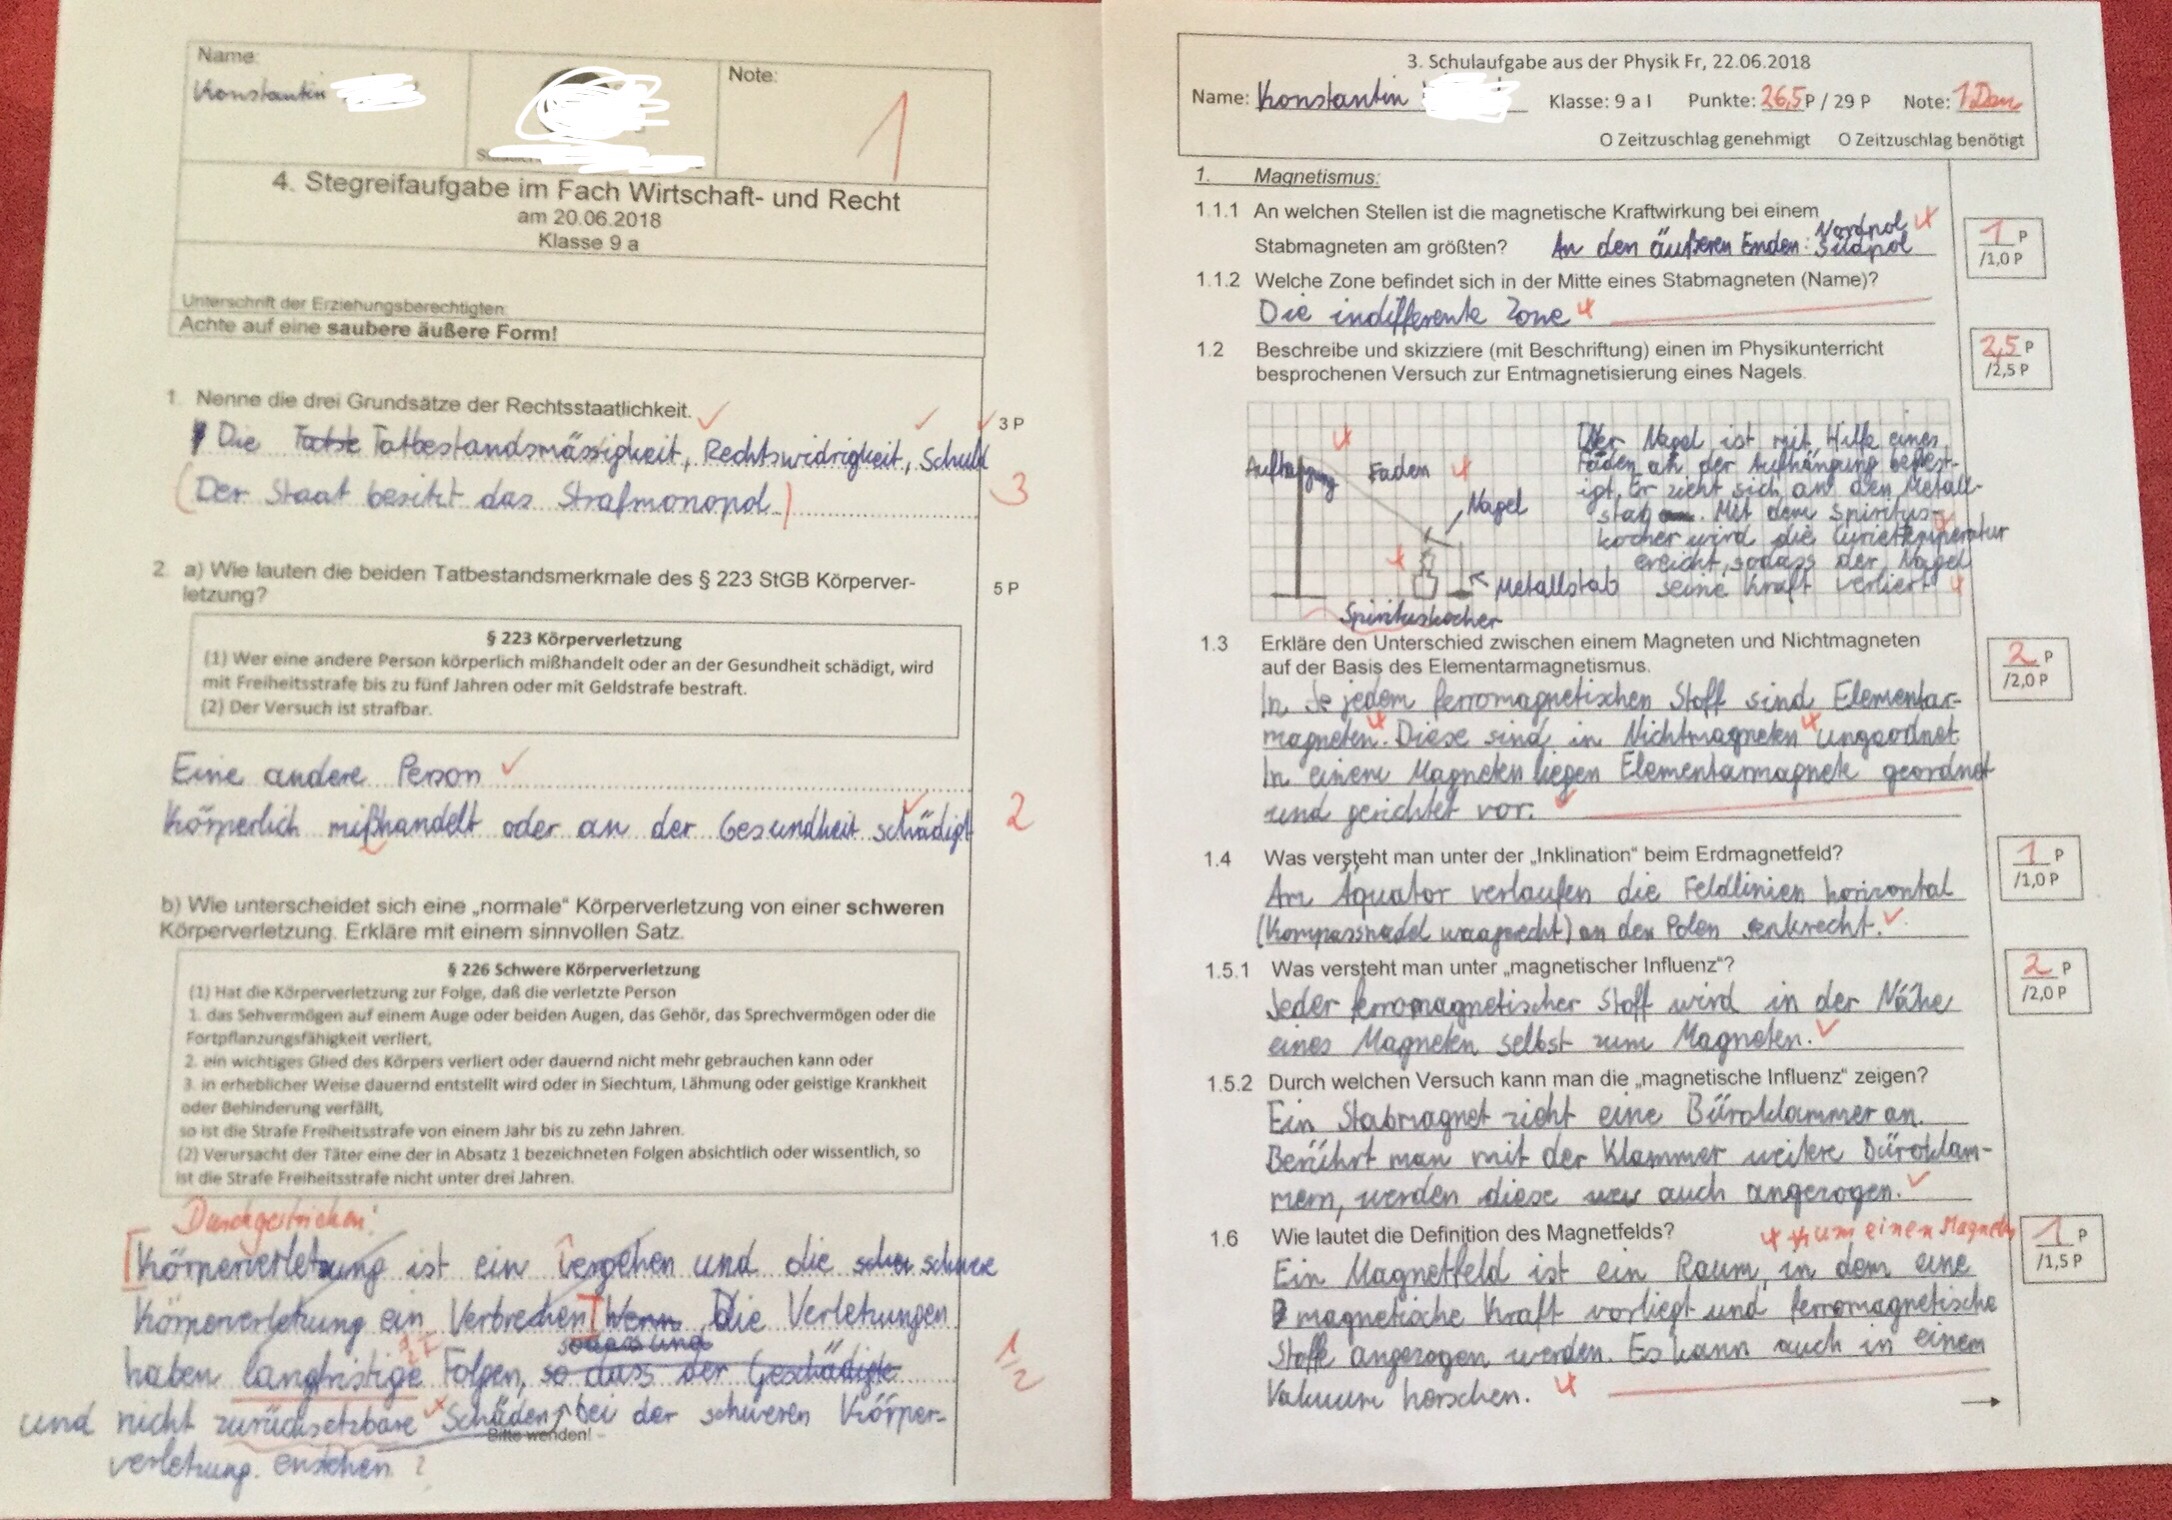 Name:
Konstantin
Note:
1
4. Stegreifaufgabe im Fach Wirtschaft- und Recht
am 20.06.2018
Klasse 9 a
Unterschrift der Erziehungsberechtigten:
Achte auf eine saubere äußere Form!
1. Nenne die drei Grundsätze der Rechtsstaatlichkeit.
3 P
Die Tatbestandsmässigkeit, Rechtswidrigkeit, Schuld
(Der Staat besitzt das Strafmonopol.)
3
2. a) Wie lauten die beiden Tatbestandsmerkmale des § 223 StGB Körperver-
letzung?
5 P
§ 223 Körperverletzung
(1) Wer eine andere Person körperlich mißhandelt oder an der Gesundheit schädigt, wird
mit Freiheitsstrafe bis zu fünf Jahren oder mit Geldstrafe bestraft.
(2) Der Versuch ist strafbar.
Eine andere Person
Körperlich mißhandelt oder an der Gesundheit schädigt
2
b) Wie unterscheidet sich eine „normale“ Körperverletzung von einer schweren
Körperverletzung. Erkläre mit einem sinnvollen Satz.
§ 226 Schwere Körperverletzung
(1) Hat die Körperverletzung zur Folge, daß die verletzte Person
1. das Sehvermögen auf einem Auge oder beiden Augen, das Gehör, das Sprechvermögen oder die
Fortpflanzungsfähigkeit verliert,
2. ein wichtiges Glied des Körpers verliert oder dauernd nicht mehr gebrauchen kann oder
3. in erheblicher Weise dauernd entstellt wird oder in Siechtum, Lähmung oder geistige Krankheit
oder Behinderung verfällt,
so ist die Strafe Freiheitsstrafe von einem Jahr bis zu zehn Jahren.
(2) Verursacht der Täter eine der in Absatz 1 bezeichneten Folgen absichtlich oder wissentlich, so
ist die Strafe Freiheitsstrafe nicht unter drei Jahren.
Durchgestrichen!
[Körperverletzung ist ein Vergehen und die schwere
Körperverletzung ein Verbrechen] Wenn Die Verletzungen
sodass und
haben langfristige Folgen, so dass der Geschädigte
1/2
und nicht zurücksetzbare Schäden, bei der schweren Körper-
Bitte wenden!
verletzung. enstehen ?
3. Schulaufgabe aus der Physik Fr, 22.06.2018
Name: Konstantin Klasse: 9 a I Punkte: 26,5 P / 29 P Note: 1
O Zeitzuschlag genehmigt O Zeitzuschlag benötigt
1. Magnetismus:
1.1.1 An welchen Stellen ist die magnetische Kraftwirkung bei einem
Stabmagneten am größten? An den äußeren Enden: Nordpol
Südpol
1 P
/1,0 P
1.1.2 Welche Zone befindet sich in der Mitte eines Stabmagneten (Name)?
Die indifferente Zone
1.2 Beschreibe und skizziere (mit Beschriftung) einen im Physikunterricht
besprochenen Versuch zur Entmagnetisierung eines Nagels.
2,5 P
/2,5 P
Aufhängung
Faden
Nagel
Metallstab
Spirituskocher
Der Nagel ist mit Hilfe eines
Faden an der Aufhängung befest-
igt. Er zieht sich an den Metall-
stab. Mit dem Spiritus-
kocher wird die Curietemperatur
erreicht, sodass der Nagel
seine Kraft verliert
1.3 Erkläre den Unterschied zwischen einem Magneten und Nichtmagneten
auf der Basis des Elementarmagnetismus.
2 P
/2,0 P
In Je jedem ferromagnetischen Stoff sind Elementar-
magneten. Diese sind in Nichtmagneten ungeordnet
In einem Magneten liegen Elementarmagnete geordnet
und gerichtet vor.
1.4 Was versteht man unter der „Inklination“ beim Erdmagnetfeld?
1 P
/1,0 P
Am Äquator verlaufen die Feldlinien horizontal
(Kompassnadel waagrecht) an den Polen senkrecht.
1.5.1 Was versteht man unter „magnetischer Influenz“?
2 P
/2,0 P
Jeder ferromagnetischer Stoff wird in der Nähe
eines Magneten selbst zum Magneten.
1.5.2 Durch welchen Versuch kann man die „magnetische Influenz“ zeigen?
Ein Stabmagnet zieht eine Büroklammer an.
Berührt man mit der Klammer weitere Büroklam-
mern, werden diese auch angezogen.
1.6 Wie lautet die Definition des Magnetfelds?
um einen Magneten
1 P
/1,5 P
Ein Magnetfeld ist ein Raum, in dem eine
magnetische Kraft vorliegt und ferromagnetische
Stoffe angezogen werden. Es kann auch in einem
Vakuum horschen.